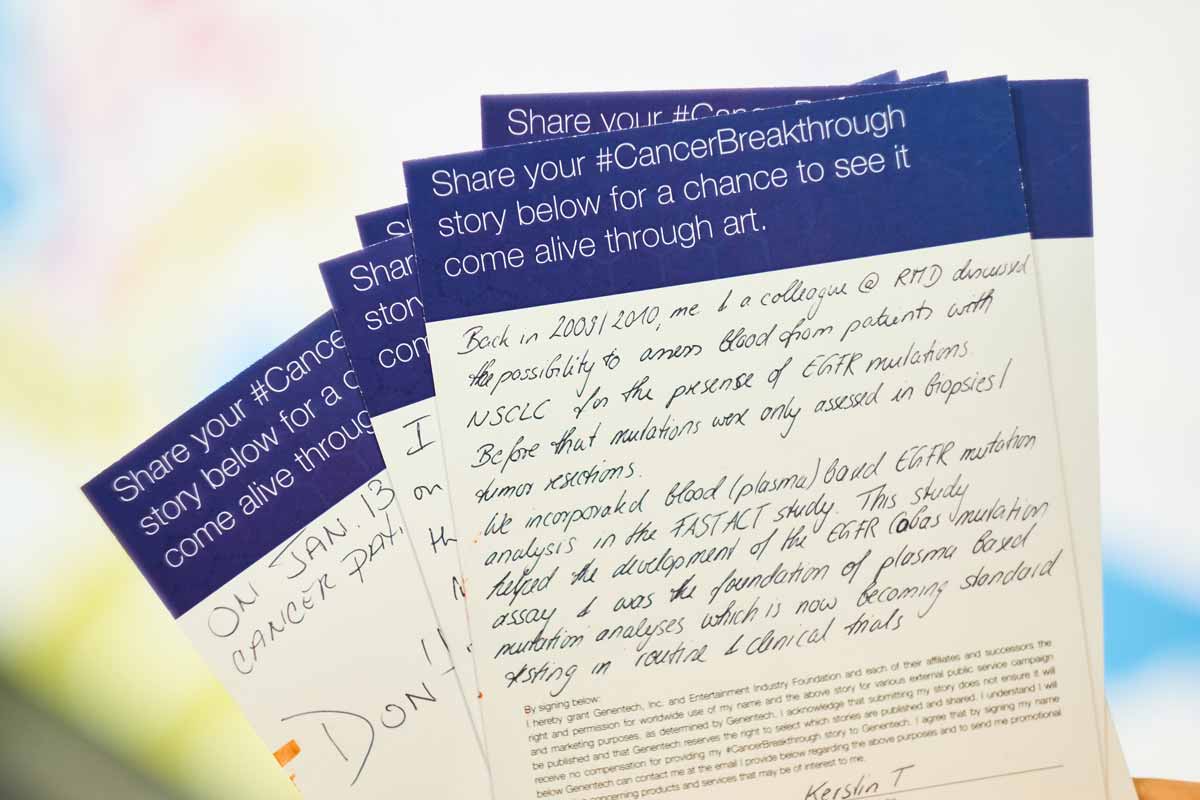 Share your #Cancer
Share your #CancerBreakthrough
story below for a chance to see it
come alive through art.
Back in 2009/2010, me & a colleague @ RMD discussed
the possibility to assess blood from patients with
NSCLC for the presense of EGFR mutations.
Before that mutations were only assessed in biopsies/
tumor resections.
We incorporated blood (plasma) based EGFR mutation
analysis in the FASTACT study. This study
helped the development of the EGFR Cobas mutation
assay & was the foundation of plasma based
mutation analyses which is now becoming standard
testing in routine & clinical trials
By signing below:
I hereby grant Genentech, Inc. and Entertainment Industry Foundation and each of their affiliates and successors the
right and permission for worldwide use of my name and the above story for various external public service campaign
and marketing purposes, as determined by Genentech. I acknowledge that submitting my story does not ensure it will
be published and that Genentech reserves the right to select which stories are published and shared. I understand I will
receive no compensation for providing my #CancerBreakthrough story to Genentech. I agree that by signing my name
below Genentech can contact me at the email I provide below regarding the above purposes and to send me promotional
concerning products and services that may be of interest to me.
Kerstin T
Sh
Shar
story
com
I
on
th
Share your #Cance
story below for a c
come alive throug
ON JAN. 13
CANCER PAY,
DON'